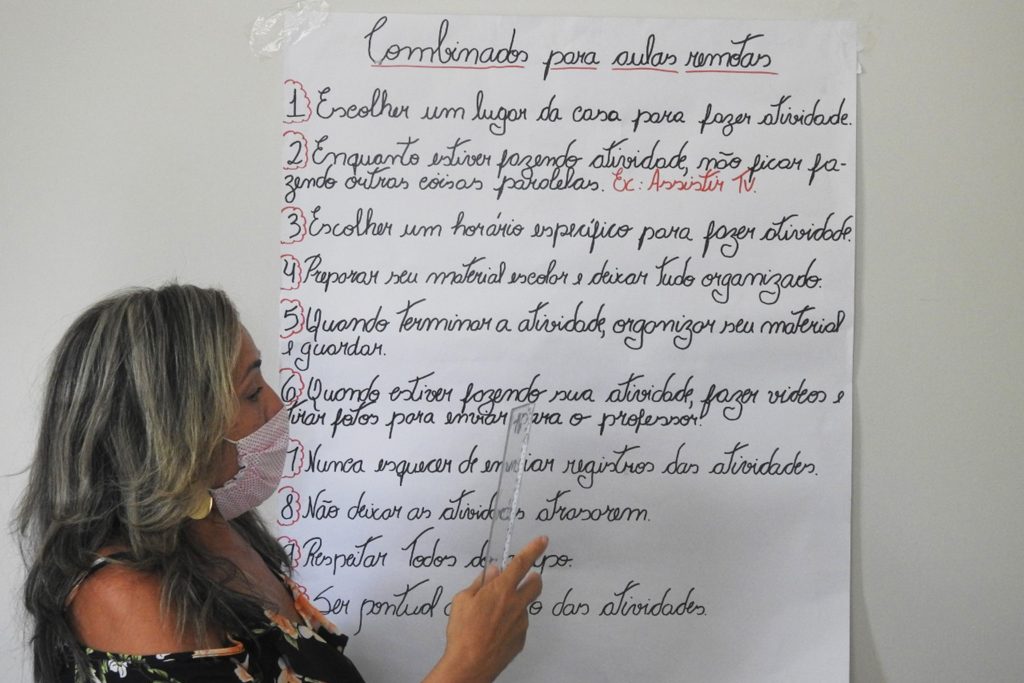 Combinados para aulas remotas
1 Escolher um lugar da casa para fazer atividade.
2 Enquanto estiver fazendo atividade, não ficar fa-
zendo outras coisas paralelas. Ex: Assistir Tv.
3 Escolher um horário específico para fazer atividade.
4 Preparar seu material escolar e deixar tudo organizado.
5 Quando terminar a atividade, organizar seu material
e guardar.
6 Quando estiver fazendo sua atividade, fazer videos e
tirar fotos para enviar para o professor!
7 Nunca esquecer de enviar registros das atividades.
8 Não deixar as atividades atrasarem.
9 Respeitar todos do
Ser pontual das atividades.